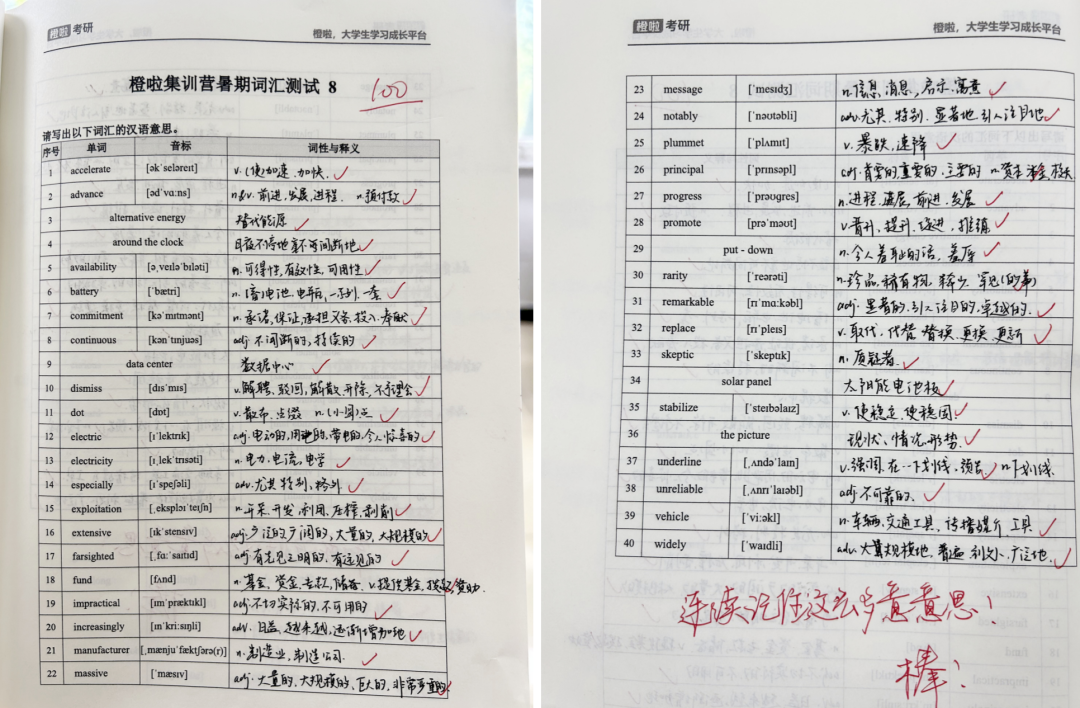 橙啦 考研
橙啦，大学生学习成长平台
橙啦集训营暑期词汇测试 8
100
请写出以下词汇的汉语意思。
序号 单词 音标 词性与释义
1 accelerate [ək'seləreɪt] v.(使)加速、加快、
2 advance [əd'vɑ:ns] n.&v. 前进、发展、进程. n.预付款
3 alternative energy 替代能源
4 around the clock 日夜不停地 毫不间断地
5 availability [ə,veɪlə'bɪləti] n. 可得性,有效性,可用性
6 battery ['bætri] n.(蓄)电池 电荷,一系列 一套
7 commitment [kə'mɪtmənt] n.承诺,保证,承担义务,投入,奉献
8 continuous [kən'tɪnjuəs] adj 不间断的、持续的
9 data center 数据中心
10 dismiss [dɪs'mɪs] v.解聘、驳回,解散 开除、不予理会
11 dot [dɒt] v.散布、点缀 n.(小圆)点
12 electric [ɪ'lektrɪk] adj.电动的,用电的,带电的,令人惊喜的
13 electricity [ɪ,lek'trɪsəti] n.电力,电流,电学
14 especially [ɪ'speʃəli] adv.尤其 特别、格外
15 exploitation [,eksplɔɪ'teɪʃn] n.开采 开发、利用、压榨、剥削
16 extensive [ɪk'stensɪv] adj.广泛的 广阔的、大量的,大规模的
17 farsighted [,fɑ:'saɪtɪd] adj.有先见之明的,有远见的
18 fund [fʌnd] n.基金、资金、存款、储备 v.提供基金,资助
19 impractical [ɪm'præktɪkl] adj.不切实际的,不可用的
20 increasingly [ɪn'kri:sɪŋli] adv. 日益,越来越,逐渐增加地
21 manufacturer [,mænju'fæktʃərə(r)] n.制造业,制造公司.
22 massive ['mæsɪv] adj.大量的,大规模的、巨大的、非常严重的
橙啦 考研
橙啦，大学生学习成长平台
23 message ['mesɪdʒ] n.信息,消息,启示,寓意
24 notably ['nəʊtəbli] adv.尤其、特别.显著地.引人注目地
25 plummet ['plʌmɪt] v.暴跌,速降
26 principal ['prɪnsəpl] adj.首要的,重要的.主要的 n.资本 校长
27 progress ['prəʊɡres] n.进程,进展,前进、发展
28 promote [prə'məʊt] v.晋升,提升.促进,推销
29 put - down n.令人羞耻的话,羞辱
30 rarity ['reərəti] n.珍品,稀有物,稀少、罕见(的事)
31 remarkable [rɪ'mɑ:kəbl] adj.显著的.引人注目的,卓越的.
32 replace [rɪ'pleɪs] v.取代、代替 替换.更换、更新
33 skeptic ['skeptɪk] n.质疑者.
34 solar panel 太阳能电池板
35 stabilize ['steɪbəlaɪz] v.使稳定、使稳固
36 the picture 现状、情况 形势.
37 underline [,ʌndə'laɪn] v.强调.在…下划线,预告 n下划线
38 unreliable [,ʌnrɪ'laɪəbl] adj.不可靠的.
39 vehicle ['vi:əkl] n.车辆,交通工具,传播媒介 工具
40 widely ['waɪdli] adv.大量规模地 普遍 到处、广泛地.
连续 这么多 意思！
棒！